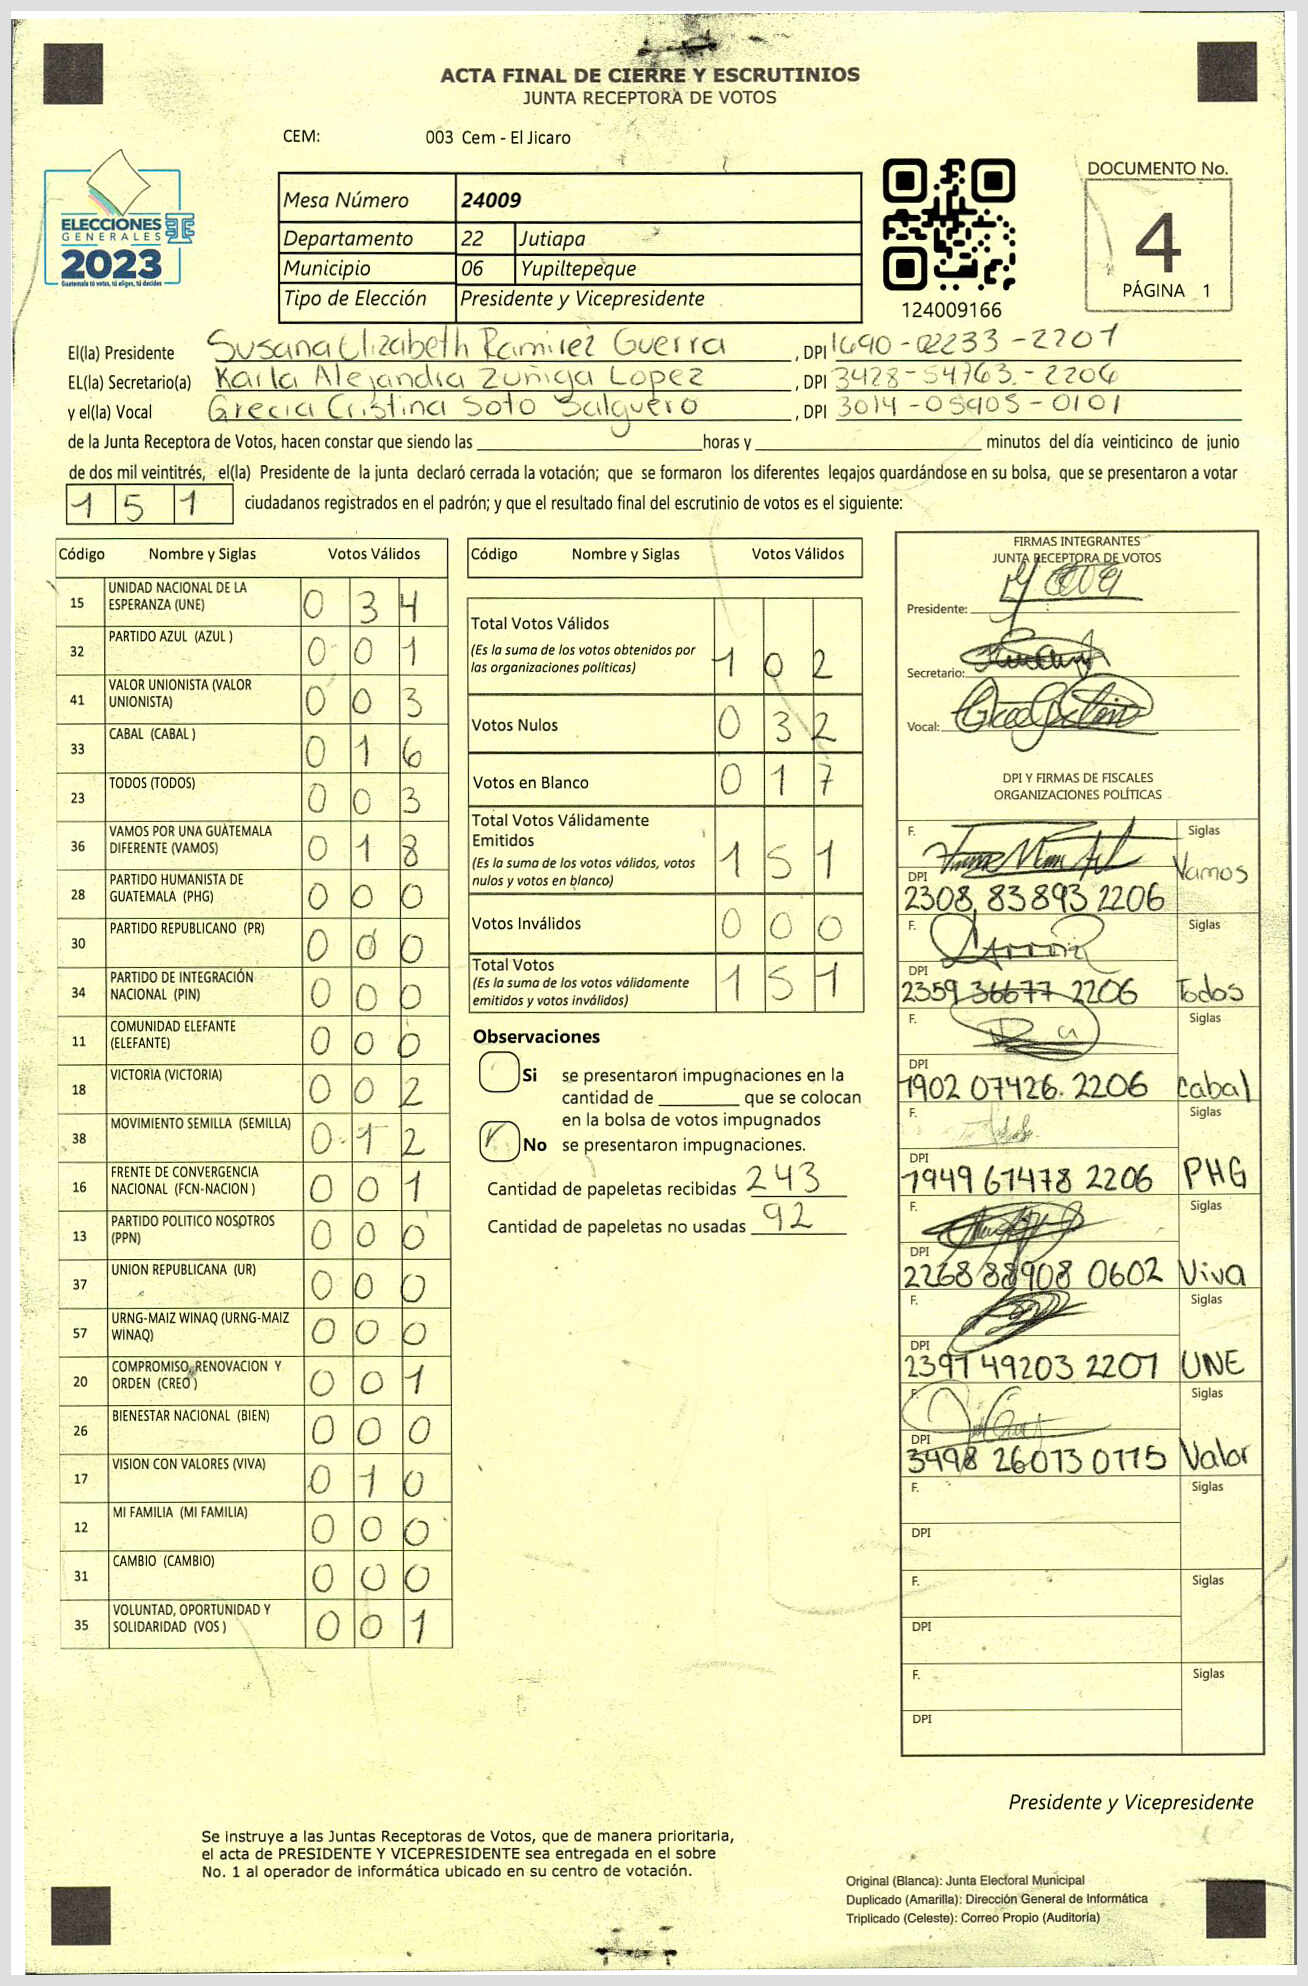 ACTA FINAL DE CIERRE Y ESCRUTINIOS
JUNTA RECEPTORA DE VOTOS
CEM: 003 Cem - El Jicaro
ELECCIONES
GENERALES
2023
Guatemala tú votas, tú eliges, tú decides
Mesa Número 24009
Departamento 22 Jutiapa
Municipio 06 Yupiltepeque
Tipo de Elección Presidente y Vicepresidente
124009166
DOCUMENTO No.
4
PÁGINA 1
El(la) Presidente Susana Elizabeth Ramirez Guerra, DPI 1690-02233-2201
EL(la) Secretario(a) Karla Alejandra Zuñiga Lopez, DPI 3428-54763-2206
y el(la) Vocal Grecia Cristina Soto Salguero, DPI 3014-05905-0101
de la Junta Receptora de Votos, hacen constar que siendo las horas y minutos del día veinticinco de junio
de dos mil veintitrés, el(la) Presidente de la junta declaró cerrada la votación; que se formaron los diferentes legajos quardándose en su bolsa, que se presentaron a votar
151 ciudadanos registrados en el padrón; y que el resultado final del escrutinio de votos es el siguiente:
Código Nombre y Siglas Votos Válidos
15 UNIDAD NACIONAL DE LA ESPERANZA (UNE) 034
32 PARTIDO AZUL (AZUL ) 001
41 VALOR UNIONISTA (VALOR UNIONISTA) 003
33 CABAL (CABAL ) 016
23 TODOS (TODOS) 003
36 VAMOS POR UNA GUATEMALA DIFERENTE (VAMOS) 018
28 PARTIDO HUMANISTA DE GUATEMALA (PHG) 000
30 PARTIDO REPUBLICANO (PR) 000
34 PARTIDO DE INTEGRACIÓN NACIONAL (PIN) 000
11 COMUNIDAD ELEFANTE (ELEFANTE) 000
18 VICTORIA (VICTORIA) 002
38 MOVIMIENTO SEMILLA (SEMILLA) 012
16 FRENTE DE CONVERGENCIA NACIONAL (FCN-NACION ) 001
13 PARTIDO POLITICO NOSOTROS (PPN) 000
37 UNION REPUBLICANA (UR) 000
57 URNG-MAIZ WINAQ (URNG-MAIZ WINAQ) 000
20 COMPROMISO, RENOVACION Y ORDEN (CREO ) 001
26 BIENESTAR NACIONAL (BIEN) 000
17 VISION CON VALORES (VIVA) 010
12 MI FAMILIA (MI FAMILIA) 000
31 CAMBIO (CAMBIO) 000
35 VOLUNTAD, OPORTUNIDAD Y SOLIDARIDAD (VOS ) 001
Código Nombre y Siglas Votos Válidos
Total Votos Válidos 102
(Es la suma de los votos obtenidos por
las organizaciones políticas)
Votos Nulos 032
Votos en Blanco 017
Total Votos Válidamente
Emitidos 151
(Es la suma de los votos válidos, votos
nulos y votos en blanco)
Votos Inválidos 000
Total Votos 151
(Es la suma de los votos válidamente
emitidos y votos inválidos)
Observaciones
Si se presentaron impugnaciones en la
cantidad de que se colocan
en la bolsa de votos impugnados
No se presentaron impugnaciones.
Cantidad de papeletas recibidas 243
Cantidad de papeletas no usadas 92
FIRMAS INTEGRANTES
JUNTA RECEPTORA DE VOTOS
Presidente:
Secretario:
Vocal:
DPI Y FIRMAS DE FISCALES
ORGANIZACIONES POLÍTICAS
F. Siglas
DPI Vamos
2308 83893 2206
F. Siglas
DPI
2359 36677 2206 Todos
F. Siglas
DPI
1902 07426 2206 Cabal
F. Siglas
DPI
1949 61478 2206 PHG
F. Siglas
DPI
2268 88908 0602 Viva
F. Siglas
DPI
2391 49203 2201 UNE
F. Siglas
DPI
3498 26013 0115 Valor
F. Siglas
DPI
F. Siglas
DPI
F. Siglas
DPI
Presidente y Vicepresidente
Se instruye a las Juntas Receptoras de Votos, que de manera prioritaria,
el acta de PRESIDENTE Y VICEPRESIDENTE sea entregada en el sobre
No. 1 al operador de informática ubicado en su centro de votación.
Original (Blanca): Junta Electoral Municipal
Duplicado (Amarilla): Dirección General de Informática
Triplicado (Celeste): Correo Propio (Auditoría)